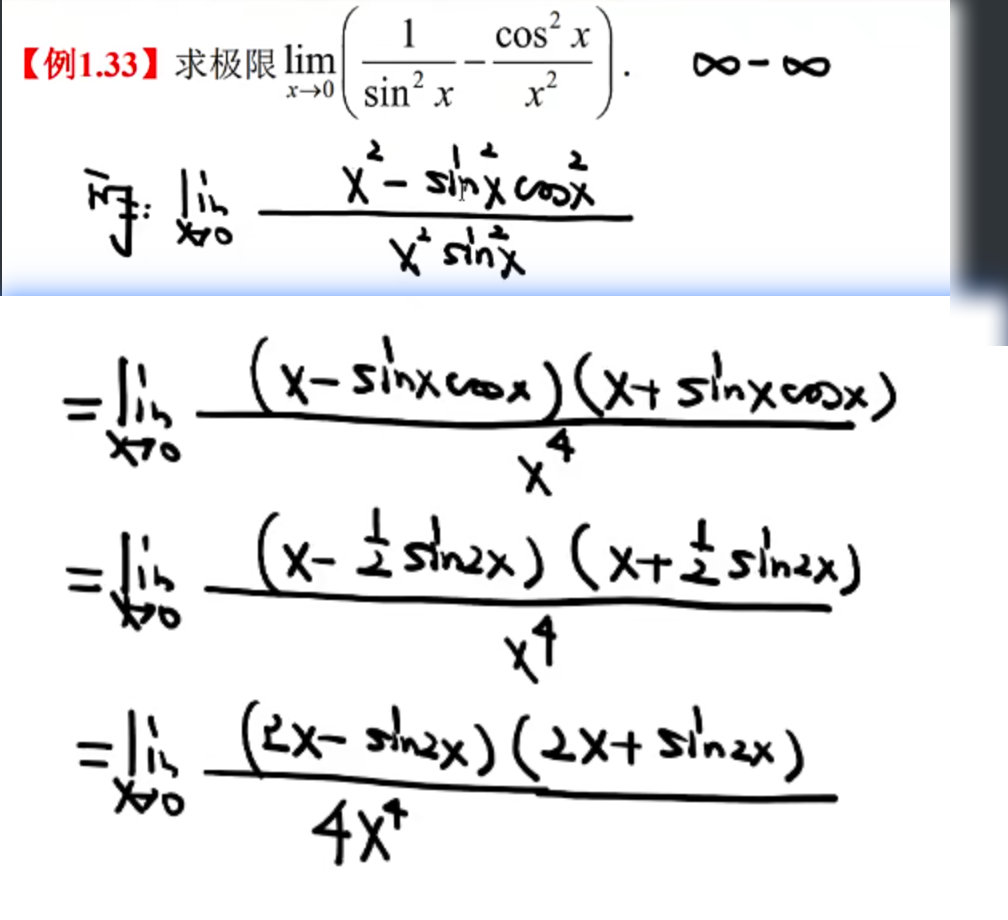 【例1.33】求极限 lim x→0 ( 1/sin² x − cos² x/x² ). ∞-∞
lim x→0 (x² - sin²x cos²x)/(x² sin²x)
= lim x→0 (x - sinx cosx)(x + sinx cosx)/x⁴
= lim x→0 (x - ½ sin2x)(x + ½ sin2x)/x⁴
= lim x→0 (2x - sin2x)(2x + sin2x)/4x⁴